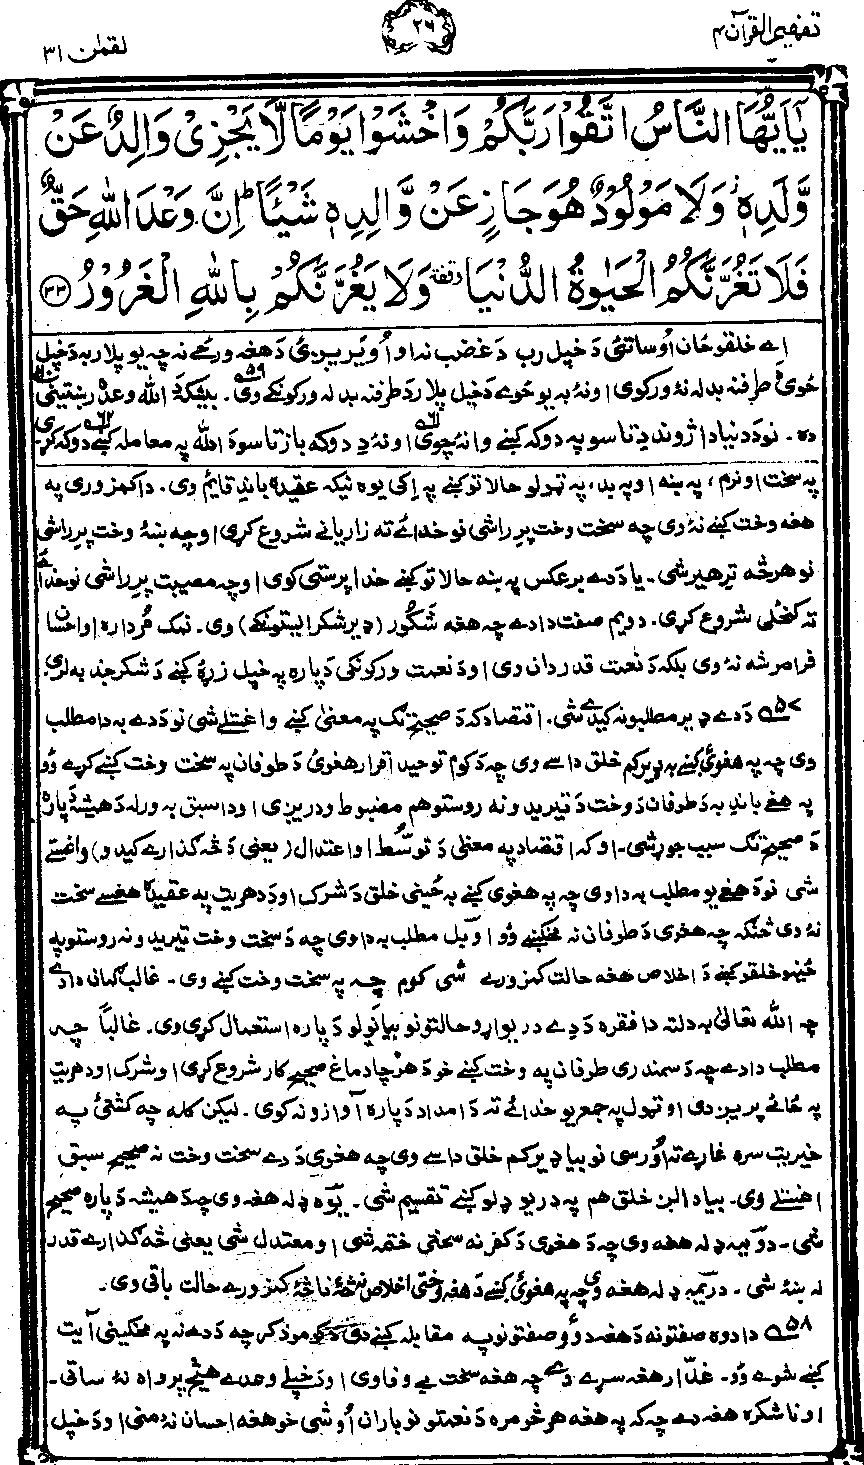 تفهيم القرآن ۴
۲۶
لقمٰن ۳۱
يٰٓاَيُّهَا النَّاسُ اتَّقُوْا رَبَّكُمْ وَاخْشَوْا يَوْمًا لَّا يَجْزِىْ وَالِدٌ عَنْ
وَّلَدِهٖ وَلَا مَوْلُوْدٌ هُوَ جَازٍ عَنْ وَّالِدِهٖ شَيْـًٔا ؕ اِنَّ وَعْدَ اللّٰهِ حَقٌّ
فَلَا تَغُرَّنَّكُمُ الْحَيٰوةُ الدُّنْيَا وقفة وَلَا يَغُرَّنَّكُمْ بِاللّٰهِ الْغَرُوْرُ ۝۳۳
اے خلقو ځان اُوساتئ دَ خپل رب دَ غضب نه او اُويريږئ دَ هغه ورځے نه چه يو پلار به دَ خپل
ځوئ دَ طرفنه بدله نۀ ورکوی اونۀ به يو ځوے دَ خپل پلار دَ طرفنه بدله ورکونکے وی۵۹. بيشکه دَ الله وعده رښتينئ۶۰
ده۔ نو دَ دنيا دا ژوند دِ تاسو په دوکه کښے وانۀ چوی۶۱ اونۀ دِ دوکه باز تاسو دَ الله په معامله کښے دوکه کړی۶۲
په سخت اونرم، په ښه اوپه بد، په ټولو حالاتو کښے په اِکی يوه نيکه عقيده باندِ قائم وی. دا کمزوری په
هغه وخت کښے نۀ وی چه سخت وخت پرِ راشی نو خدائے ته زاریانے شروع کړی اوچه ښۀ وخت پرِ راشی
نو هرڅه ترِ هير شی۔ يا دَدے برعکس په ښه حالاتو کښے خدا پرستی کوی اوچه مصيبت پرِ راشی نو خدائے
ته کنځلی شروع کړی. دويم صفت دادے چه هغه شَکُور (ډير شکر ايستونکے) وی. نمک حُرداره اواحسان
فراموشه نۀ وی بلکه دَ نعمت قدردان وی اودَ نعمت ورکونکی دَپاره په خپل زړۀ کښے دَ شکر جذبه لری.
۵۷ دَدے ډير مطلبونه کيدے شی. اقتصاد که دَ صحيح تګ په معنیٰ کښے واغستلے شی نو دَدے به دا مطلب
وی چه په هغوئ کښے به ډير کم خلق داسے وی چه دَ کوم توحيد اقرار هغوئ دَ طوفان په سخت وخت کښے کړے وُو
په هغے باندِ به دَ طوفان دَ وخت دَ تيريدو نه روستو هم مضبوط ودريږی اودا سبق به ورله دَ هميشه دَپاره
دَ صحيح تګ سبب جوړ شی۔ اوکه اقتصاد په معنیٰ دَ توسُّط اواعتدال (يعنی دَ څه ګذارے کيدو) واغستے
شی نو دَ هغے يو مطلب به داوی چه په هغوی کښے به ځينی خلق دَ شرک اودَ دهريت په عقيده هغسے سخت
نۀ وی څنګه چه هغوی دَ طوفان نه مخکښے وُو اوبل مطلب به داوی چه دَ سخت وخت تيريدو نه روستو په
ځينو خلقو کښے دَ اخلاص هغه حالت کمزورے شی کوم چه په سخت وخت کښے وی۔ غالب ګمان دادے
چه الله تعالیٰ به دلته دا فقره دَدے دريواړو حالتونو بيانولو دَپاره استعمال کړی وی. غالباً چه
مطلب دادے چه دَ سمندری طوفان په وخت کښے خو دَ هرچا دماغ صحيح کار شروع کړی اوشرک اودهريت
په ځائے پريږدی اوټول په جمع يو خدائے ته دَ امداد دَپاره آوازونه کوی. ليکن کله چه کشتئ په
خيريت سره غاړے ته اُورسی نو بيا ډير کم خلق داسے وی چه هغوی دَدے سخت وخت نه صحيح سبق
اغستلے وی. بيا دالږ خلق هم په دريو ډلو کښے تقسيم شی. يوه ډله هغه وی چه دَ هميشه دَپاره صحيح
شی۔ دوَيمه ډله هغه وی چه دَ هغوی دَ کفر نه سختی ختمه شی اومعتدل شی يعنی څه ګذارے قدر
له ښۀ شی. دريمه ډله هغه وی چه په هغوئ کښے دَ هغه وختی اخلاص نه څه ناڅه کمزورے حالت باقی وی.
۵۸ دا دوه صفتونه دَ هغه دوؤ صفتونو په مقابله کښے دی دَ کومو ذکر چه دَدے نه په مخکينی آيت
کښے شوے وُو۔ غدّار هغه سړے دے چه هغه سخت بے وفا وی اودَ خپلے وعدے هيڅ پرواه نۀ ساتی۔
اوناشکره هغه دے چه که په هغه هرڅومره دَ نعمتونو باران اُوشی خو هغه احسان نۀ منی اودَ خپل